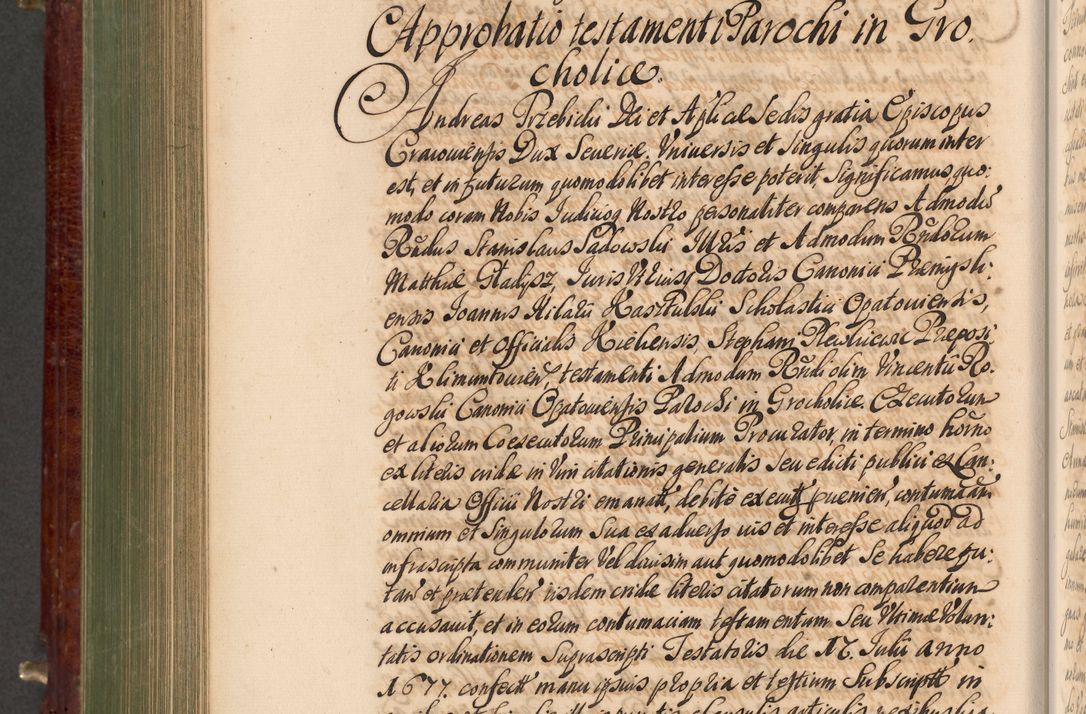 Approbatio testamenti Parochi in Gro
cholice.
Andreas Trzebicki Dei et Aplicæ Sedis gratia Episcopus
Cracouiensis Dux Seueriæ, Vniuersis et Singulis quorum inter
est, et in futurum quomodolibet interesse poterit, Significamus quo:
modo coram Nobis Iudicioq Nostro personaliter comparens Admodu
Rndus Stanislaus Sadowski Illris et Admodum Rndorum
Matthiæ Gladysz, Iuris Vtriusq Doctoris Canonici Premysli:
ensis Ioannis Hilarii Scholastici Opatouiensis,
Canonici et Officialis Kielcensis, Stephani Præposi
ti Klimuntouien, testamenti Admodum Rndi olim Vincentii Ro:
gowski Canonici Opatouiensis Parochi in Grocholice. Executorum
et aliorum Coexecutorum Principalium Procurator, in termino horno
ex literis cridæ in Vim citationis generalis seu edicti publici ex Can:
cellaria Officii Nostri emanatt, debite executt, contumaciam
omnium et Singulorum Sua ex aduerso uis et interesse aliquod ad
infrascripta communiter Vel diuisim aut quomodolibet Se habere pu:
tan et prætenden iisdem cridæ literis citatorum non comparentium
accusauit, et in eorum contumaciam testamentum Seu Vltimæ Volun:
tatis ordinationem Suprascripti Testatoris die 17. Iulii anno
1677. confectt manu ipsius propria et testium Subscriptt in